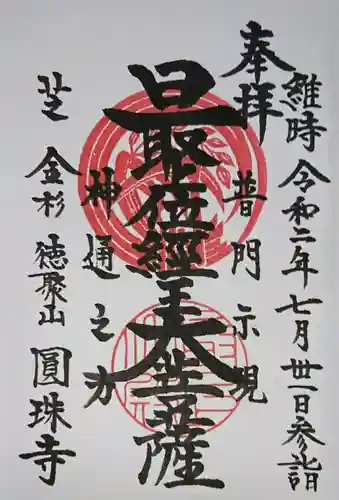 維時令和二年七月卅一日参詣
奉拝
普門示現
最位經王大菩薩
神通之力
芝金杉
徳聚山
圓珠寺